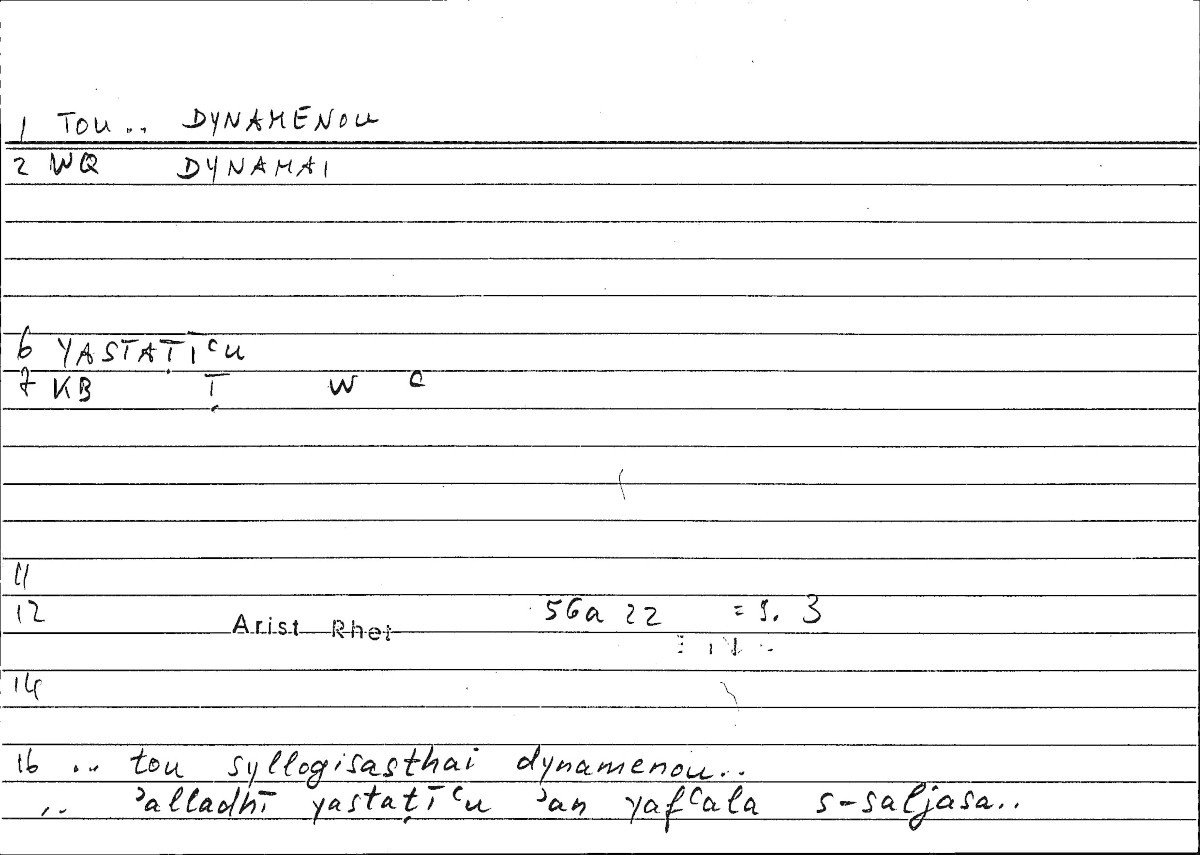 1 TOU .. DYNAMENOU
2 WQ DYNAMAI
6 YASTAṬĪʿU
7 KB Ṭ W ʿ
11
12 Arist Rhet 56a 22 = S. 3
14
16 .. tou syllogisasthai dynamenou..
.. ʾalladhī yastaṭīʿu ʾan yafʿala s-saljasa..